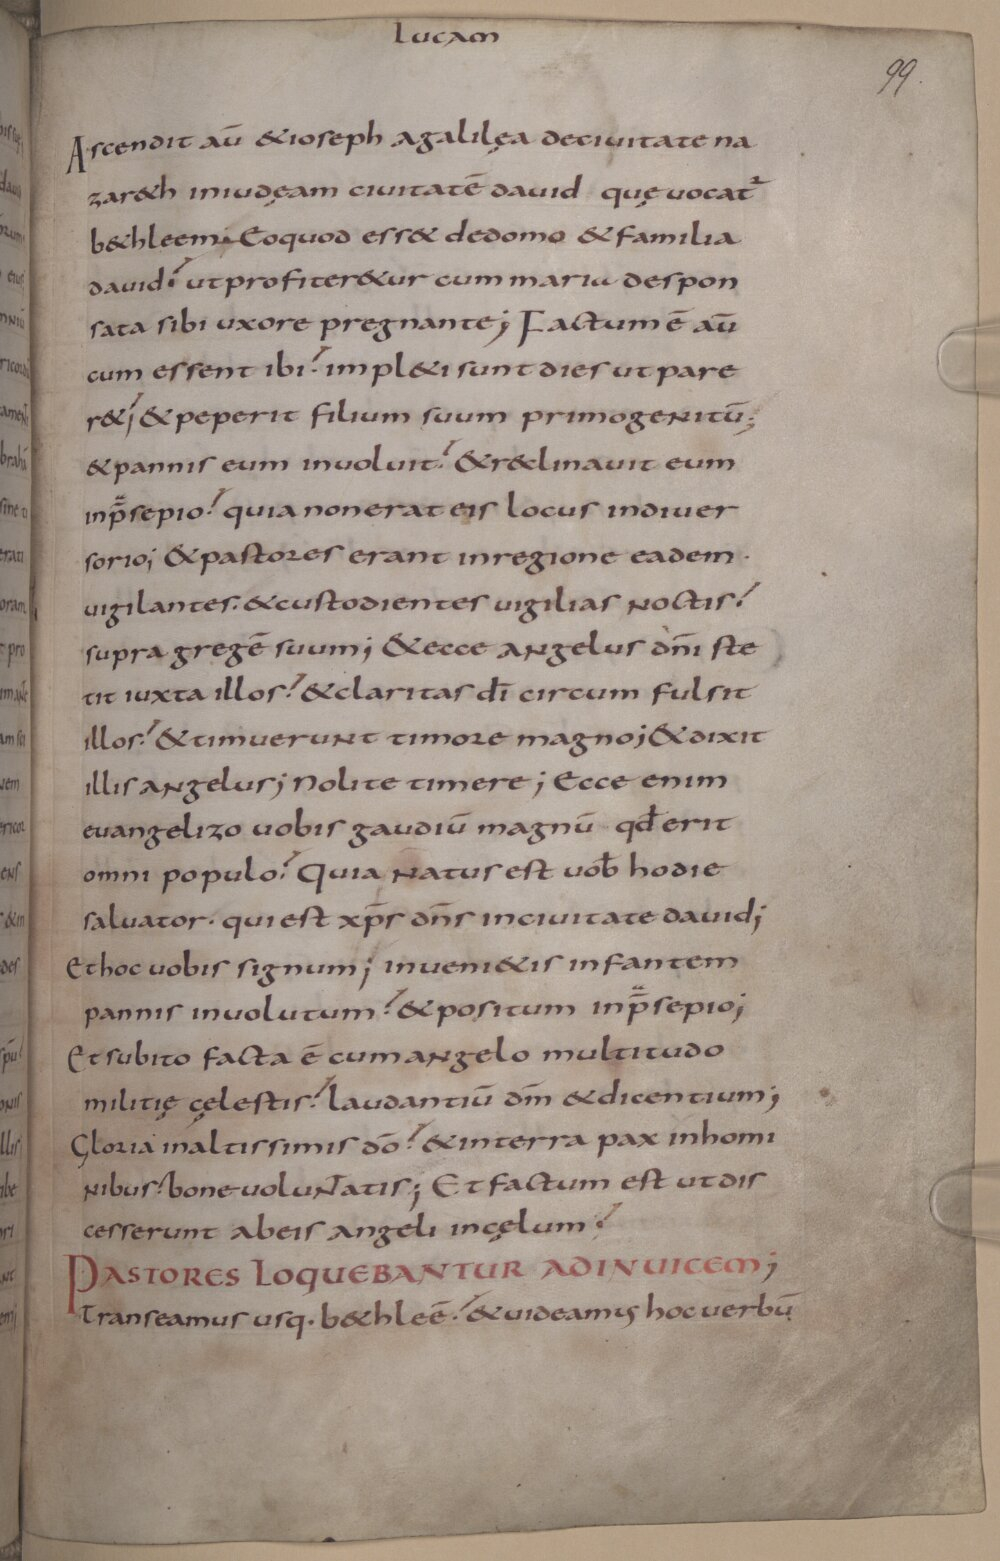 Lucam
99.
Ascendit aū & ioseph a galilęa de ciuitate na
zar&h in iudęam ciuitatē dauid quę uocat᷑
b&hleem; Eo quod ess& de domo & familia
dauid. ut profiter&ur cum maria despon
sata sibi uxore pregnante; Factum ē aū
cum essent ibi. impl&i sunt dies ut pare
r&; & peperit filium suum primogenitū;
& pannis eum inuoluit. & r&clinauit eum
in p̄sepio. quia non erat eis locus in diuer
sorio; & pastores erant in regione eadem.
uigilantes. & custodientes uigilias noctis.
supra gregē suum; & ecce angelus dn̄i ste
tit iuxta illos. & claritas dī circum fulsit
illos. & timuerunt timore magno; & dixit
illis angelus; Nolite timere; Ecce enim
euangelizo uobis gaudiū magnū qđ erit
omni populo. Quia natus est uob̄ hodie
saluator. qui est xp̄s dn̄s in ciuitate dauid;
Et hoc uobis signum; inueni&is infantem
pannis inuolutum. & positum in p̄sepio;
Et subito facta ē cum angelo multitudo
militię cęlestis. laudantiū dm̄ & dicentium;
Gloria in altissimis dō. & in terra pax in homi
nibus. bone uoluntatis; Et factum est ut dis
cesserunt ab eis angeli in cęlum.
PASTORES LOQUEBANTUR AD INUICEM;
Transeamus usq. b&hleē. & uideamus hoc uerbū